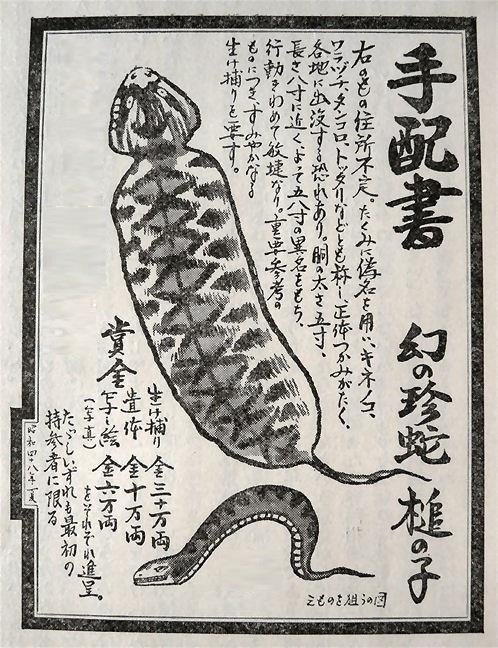 手配書 幻の珍蛇 槌の子
右のもの住所不定。たくみに偽名を用い、キネノコ、
ワラヅチ、タンコロ、トックリなどとも称し、正体つかみがたく、
各地に出没する恐れあり。胴の太さ五寸、
長さ八寸に近く、よって五八寸の異名をもち、
行動きわめて敏捷なり。重要参考の
ものにつき、すみやかなる
生け捕りを要す。
賞金
生け捕り 金三十万両
遺体 金十万両
写し絵 金六万両
(写真) をそれぞれ進呈。
ただし、いずれも最初の
持参者に限る
昭和四十八年
えものを狙うの図